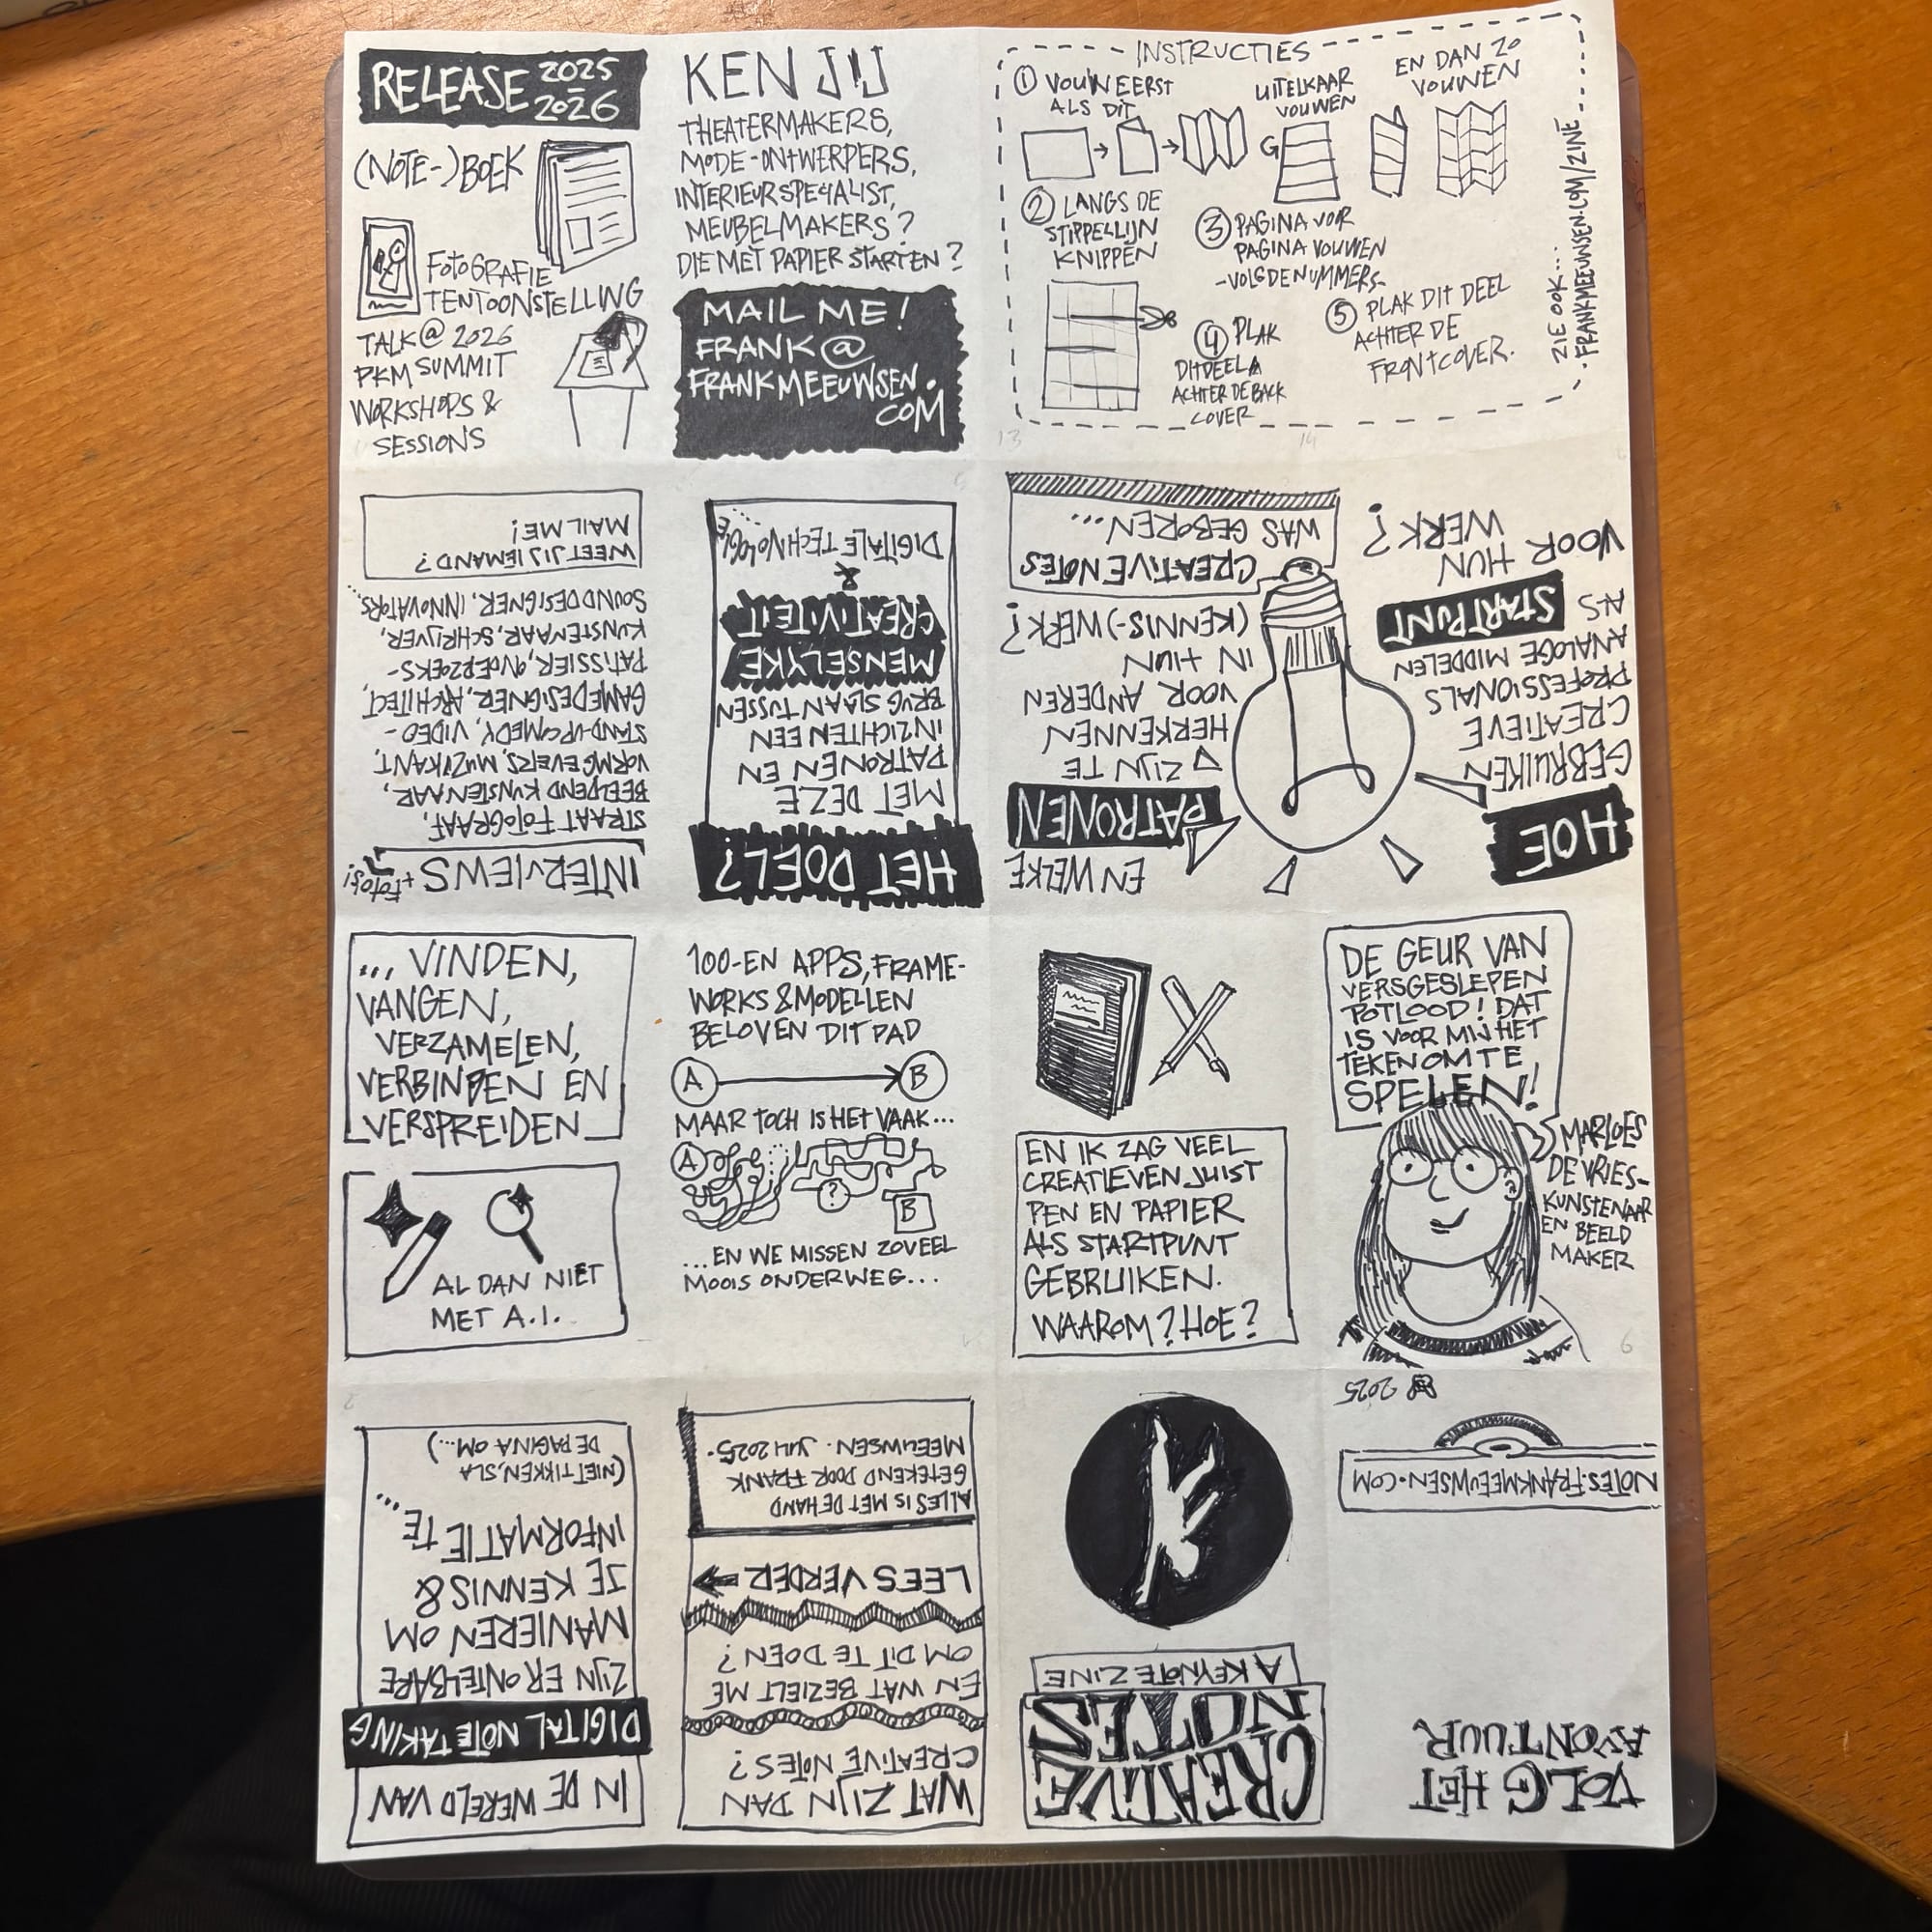 RELEASE 2025
- 2026
(NOTE-)BOEK
FOTOGRAFIE
TENTOONSTELLING
TALK@ 2026
PKM SUMMIT
WORKSHOPS &
SESSIONS
KEN JIJ
THEATERMAKERS,
MODE-ONTWERPERS,
INTERIEURSPECIALIST,
MEUBELMAKERS?
DIE MET PAPIER STARTEN?
MAIL ME!
FRANK@
FRANKMEEUWSEN.
COM
INSTRUCTIES
① VOUW EERST
ALS DIT
UITELKAAR
VOUWEN
EN DAN ZO
VOUWEN
② LANGS DE
STIPPELLIJN
KNIPPEN
③ PAGINA VOOR
PAGINA VOUWEN
-VOLG DE NUMMERS-
④ PLAK
DIT DEEL
ACHTER DE BACK
COVER
⑤ PLAK DIT DEEL
ACHTER DE
FRONTCOVER.
ZIE OOK...
FRANKMEEUWSEN.COM/ZINE
13
14
INTERVIEWS + FOTO'S!
STRAATFOTOGRAAF,
BEELDEND KUNSTENAAR,
VORMGEVERS, MUZIKANT,
STAND-UP COMEDY, VIDEO-
GAMEDESIGNER, ARCHITECT,
PATISSIER, ONDERZOEKS-
KUNSTENAAR, SCHRIJVER,
SOUNDDESIGNER, INNOVATORS...
WEET JIJ IEMAND?
MAIL ME!
HET DOEL?
MET DEZE
PATRONEN EN
INZICHTEN EEN
BRUG SLAAN TUSSEN
MENSELYKE
CREATIVITEIT
&
DIGITALE TECHNOLOGIE...
EN WELKE
PATRONEN
ZIJN TE
HERKENNEN
VOOR ANDEREN
IN HUN
(KENNIS-)WERK?
CREATIVE NOTES
WAS GEBOREN...
HOE
GEBRUIKEN
CREATIEVE
PROFESSIONALS
ANALOGE MIDDELEN
ALS
STARTPUNT
VOOR HUN
WERK?
... VINDEN,
VANGEN,
VERZAMELEN,
VERBINDEN EN
VERSPREIDEN
AL DAN NIET
MET A.I.
100-EN APPS, FRAME-
WORKS & MODELLEN
BELOVEN DIT PAD
A B
MAAR TOCH IS HET VAAK...
A
?
B
...EN WE MISSEN ZOVEEL
MOOIS ONDERWEG...
EN IK ZAG VEEL
CREATIEVEN JUIST
PEN EN PAPIER
ALS STARTPUNT
GEBRUIKEN.
WAAROM? HOE?
DE GEUR VAN
VERSGESLEPEN
POTLOOD! DAT
IS VOOR MIJ HET
TEKEN OM TE
SPELEN!
MARLOES
DE VRIES-
KUNSTENAAR
EN BEELD
MAKER
6
IN DE WERELD VAN
DIGITAL NOTETAKING
ZIJN ER ONTELBARE
MANIEREN OM
JE KENNIS &
INFORMATIE TE
...
(NIET TIKKEN, SLA
DE PAGINA OM...)
WAT ZIJN DAN
CREATIVE NOTES?
EN WAT BEZIELT ME
OM DIT TE DOEN?
LEES VERDER
ALLES IS MET DE HAND
GETEKEND DOOR FRANK
MEEUWSEN. JULI 2025.
CREATIVE
NOTES
A KEYNOTE ZINE
VOLG HET
AVONTUUR
NOTES.FRANKMEEUWSEN.COM
2025